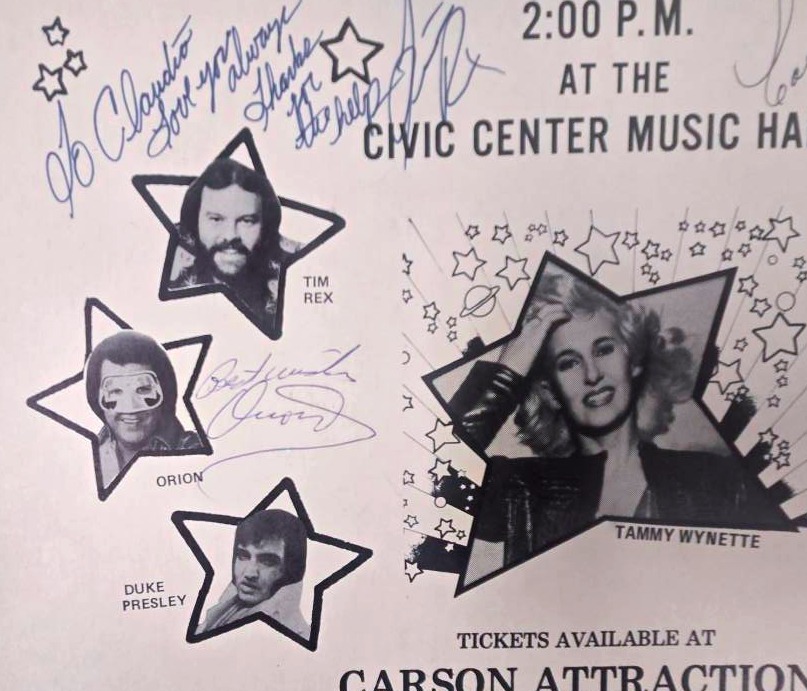 2:00 P.M.
AT THE
CIVIC CENTER MUSIC HA
To Claudio
Love you
always
Thanks
for
the help
Tim Rex
TIM
REX
Best wishes
Orion
ORION
DUKE
PRESLEY
TAMMY WYNETTE
TICKETS AVAILABLE AT
CARSON ATTRACTION